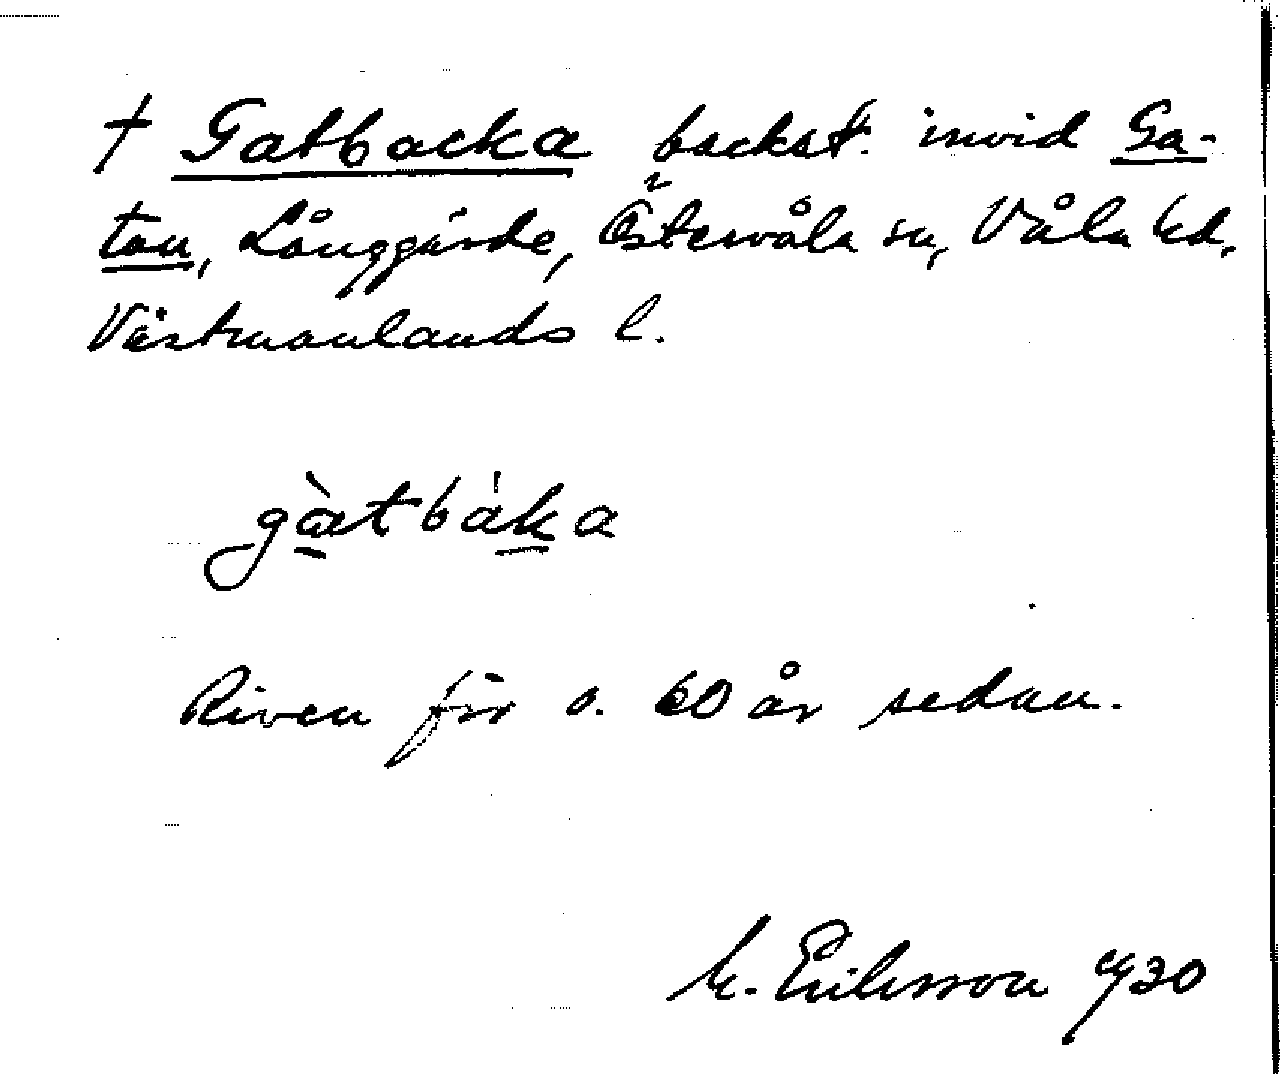 † Gatbacka backst. invid Ga-
tan, Långgärde, Östervåla sn, Våla hd,
Västmanlands l.
gàtbáka
Riven för o. 60 år sedan.
M. Eriksson 1930